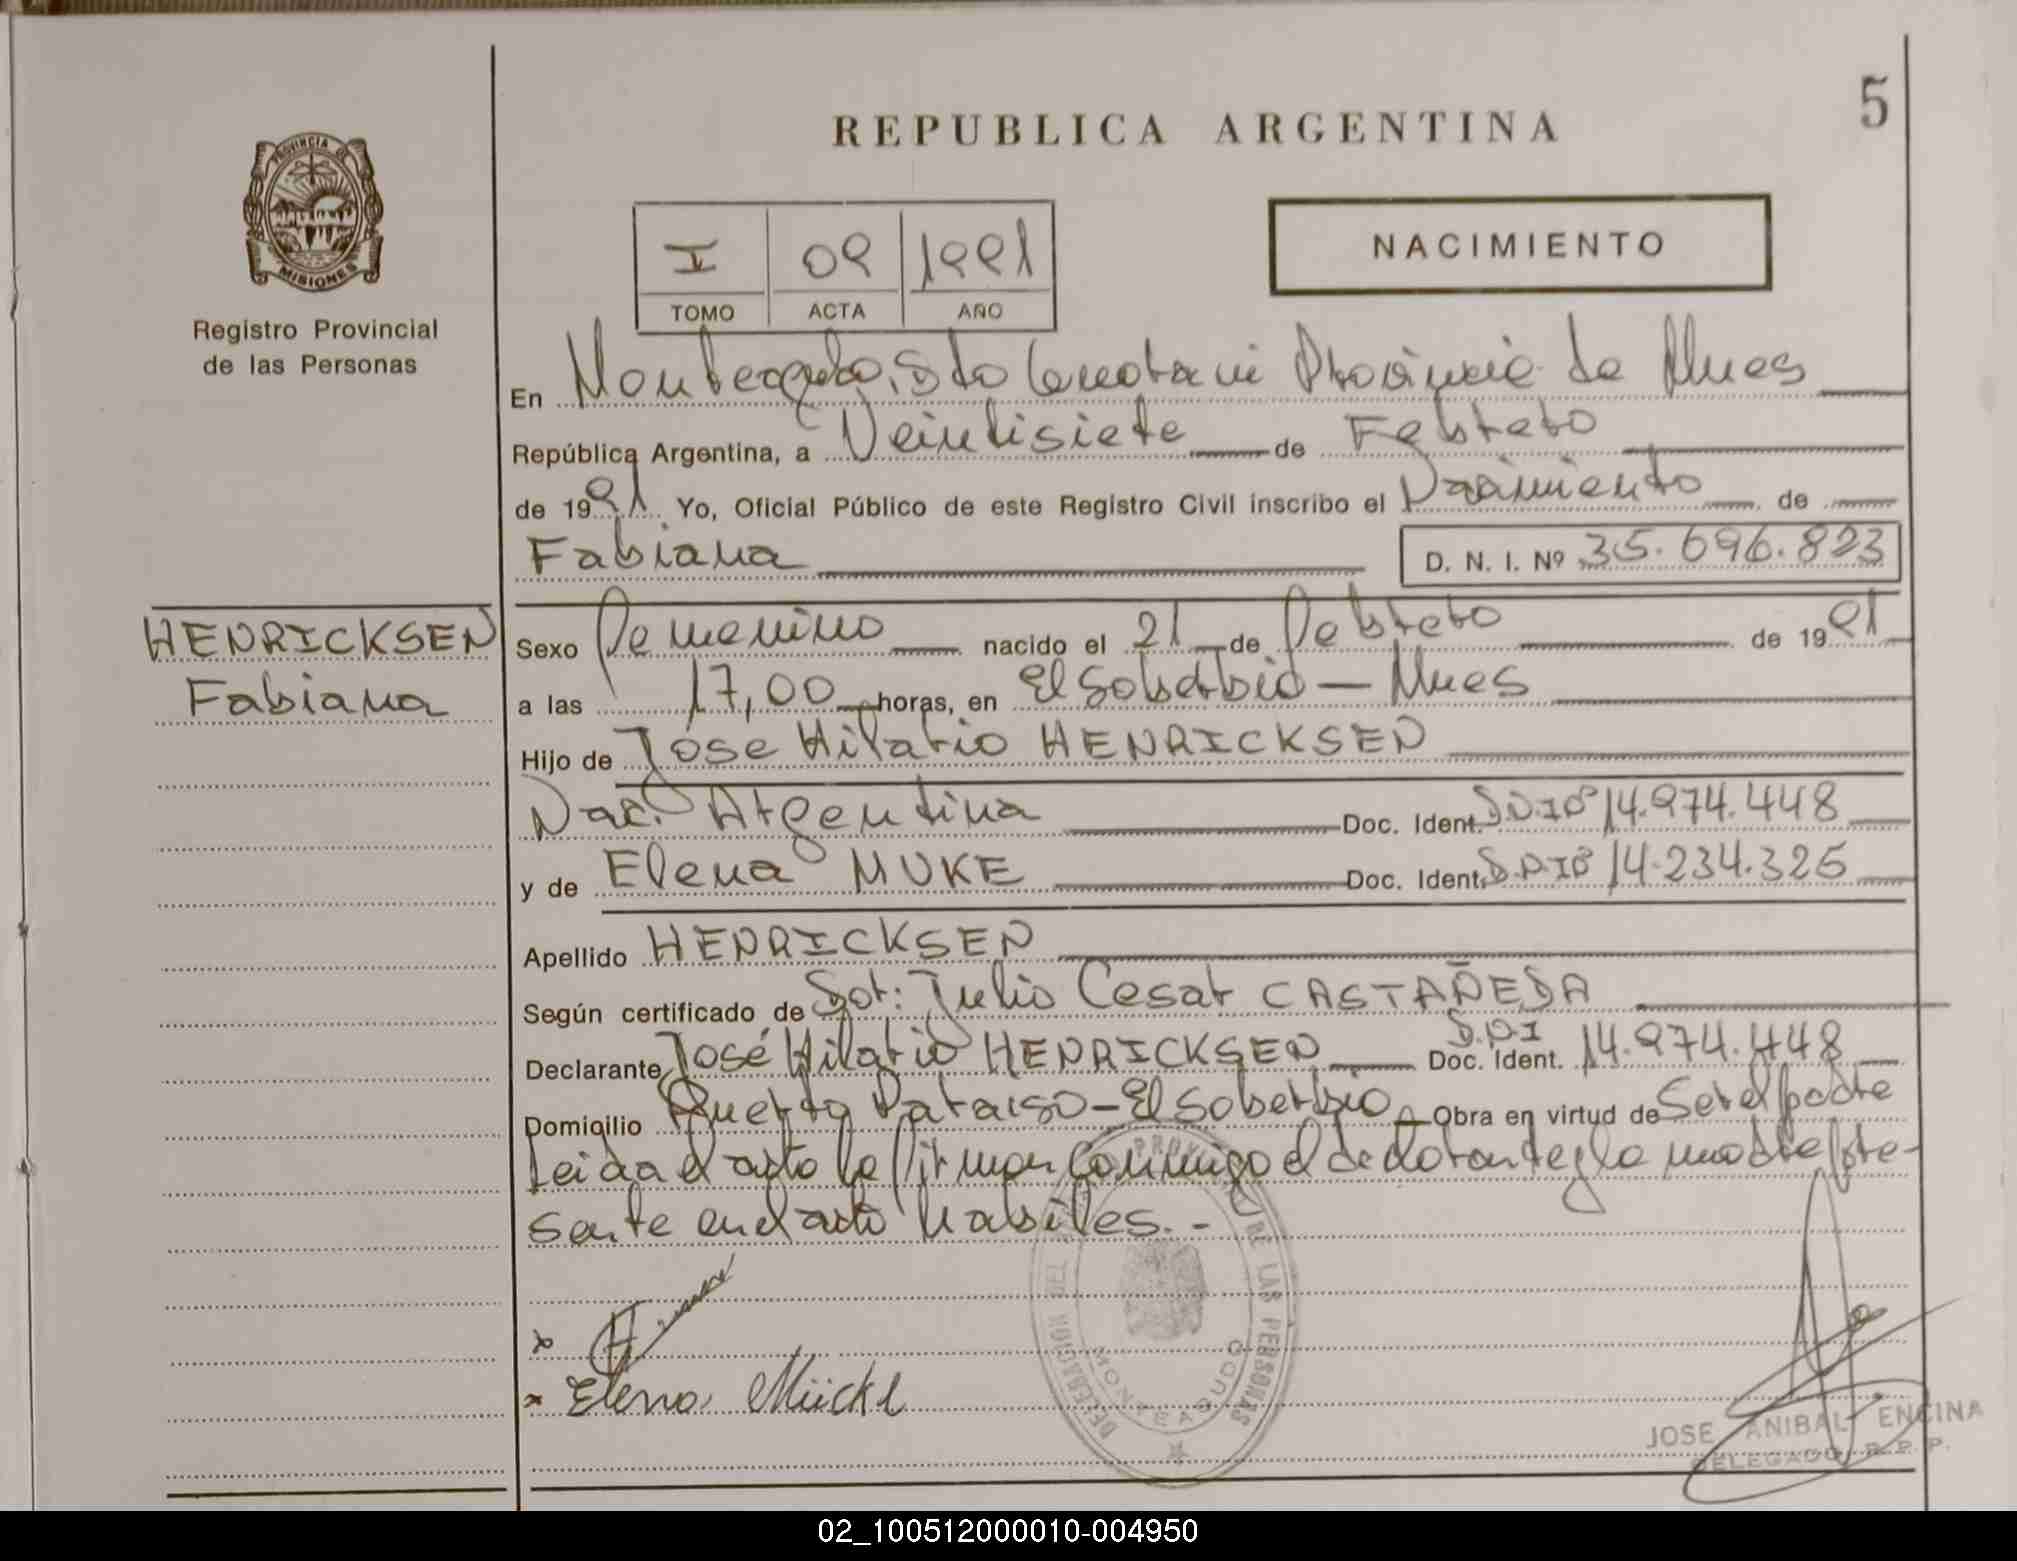 5
REPUBLICA ARGENTINA
PROVINCIA DE
MISIONES
Registro Provincial
de las Personas
I 09 1991
TOMO ACTA AÑO
NACIMIENTO
En Monteagudo, Dto Guarani Provincia de Mnes
República Argentina, a Veintisiete de Febrero
de 1991 Yo, Oficial Público de este Registro Civil inscribo el Nacimiento de
Fabiana D. N. I. Nº 35.696.823
HENRICKSEN
Fabiana
Sexo Femenino nacido el 21 de Febrero de 1991
a las 17,00 horas, en El Soberbio — Mnes
Hijo de José Hilario HENRICKSEN
Nac. Argentina Doc. Ident. D.N.Iº 14.974.448
y de Elena MUKE Doc. Ident. D.N.Iº 14.234.325
Apellido HENRICKSEN
Según certificado de Dor: Julio Cesar CASTAÑEDA
Declarante José Hilario HENRICKSEN Doc. Ident. D.N.I 14.974.448
Domicilio Puerto Paraiso - El Soberbio Obra en virtud de Ser el padre
Leida el acta la firman conmigo el declarante y la madre pre-
sente en el acto habiles.-
x
x Elena Mückl
DELEGACION DEL REGISTRO PROVINCIAL DE LAS PERSONAS
MONTEAGUDO
JOSE ANIBAL ENCINA
DELEGADO R. P. P.
02_100512000010-004950